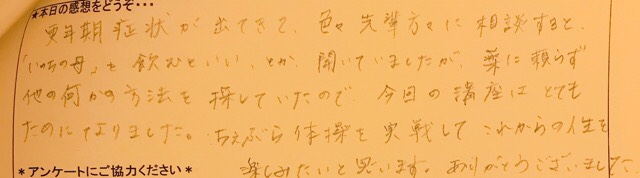 ★本日の感想をどうぞ・・・
更年期症状が出てきて、色々先輩方々に相談すると、
「いのちの母」を飲むといい、とか、聞いていましたが、薬に頼らず
他の何かの方法を探していたので、今日の講座はとても
ためになりました。ちぇぶら体操を実戦してこれからの人生を
楽しみたいと思います。ありがとうございました
＊アンケートにご協力ください＊